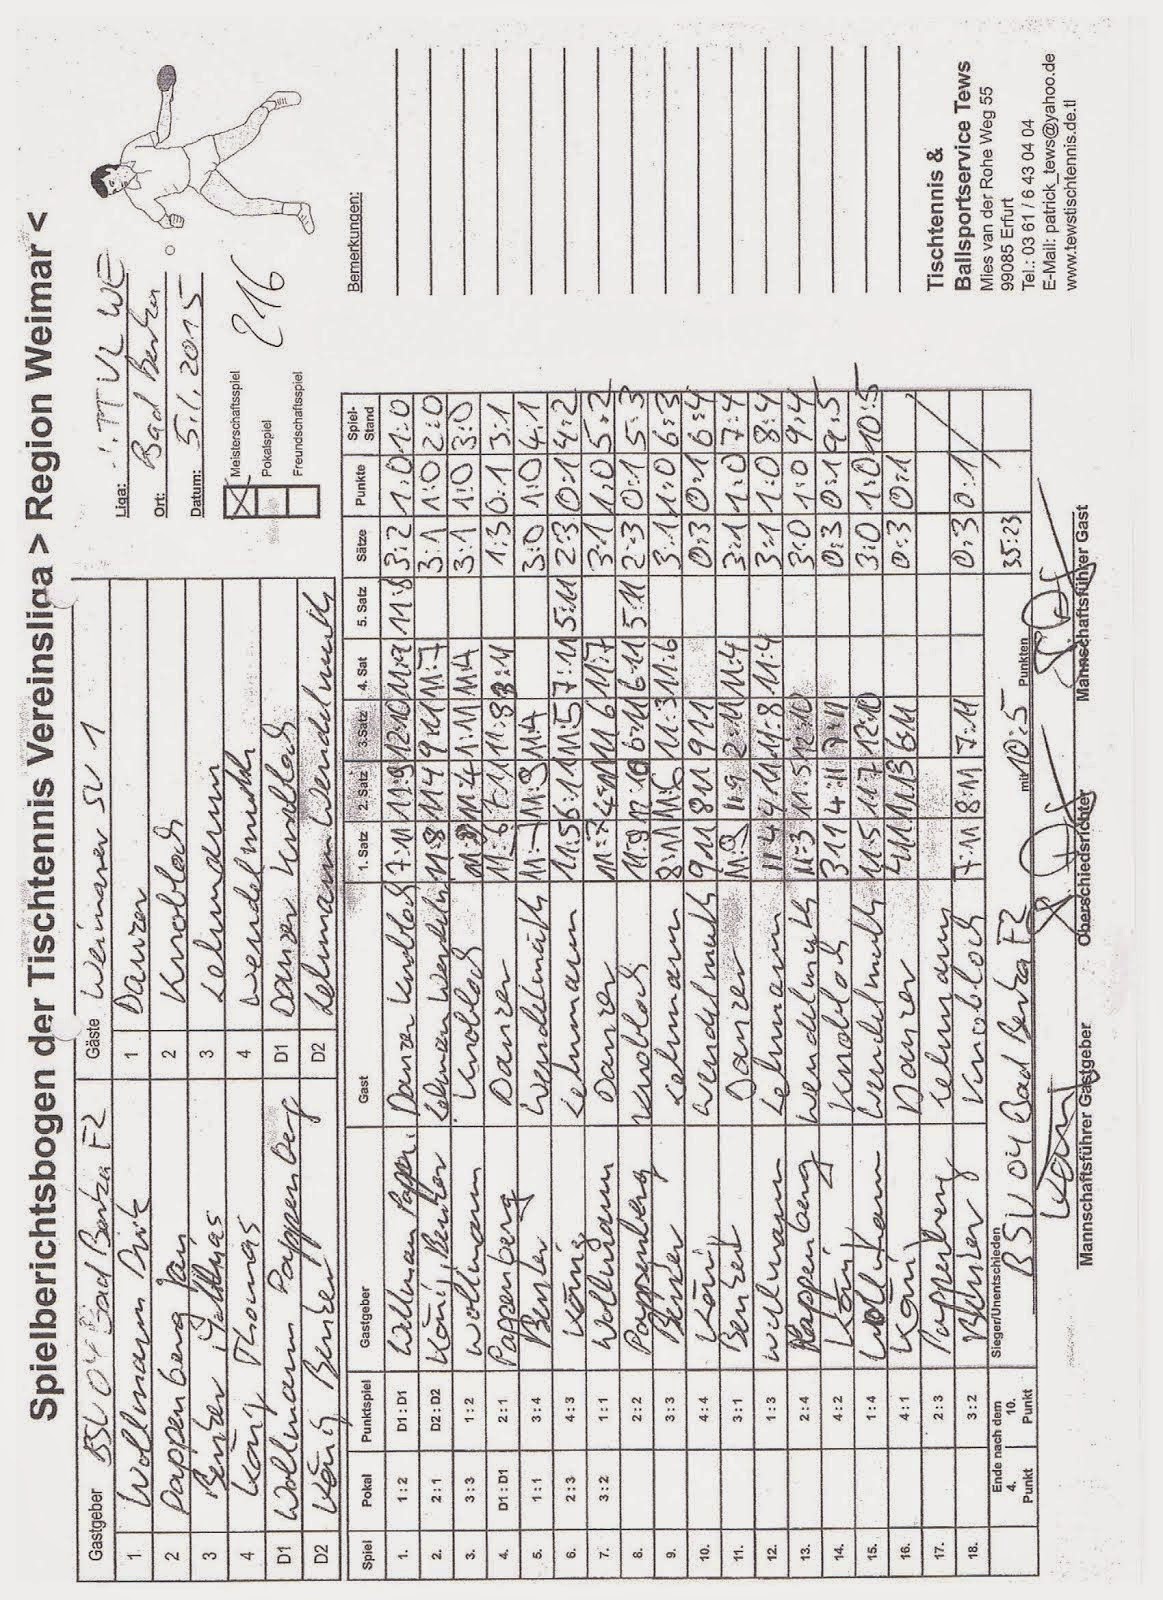 Spielberichtsbogen der Tischtennis Vereinsliga > Region Weimar <
Gastgeber BSV 04 Bad Berka F2 Gäste Weimarer SV 1
1 Wollmann 1 Danzer
2 Pappenberg Jan 2 Knobloch
3 3 Lehmann
4 König Thomas 4 Wendelmuth
D1 Wollmann Pappenberg D1 Danzer Knobloch
D2 König D2 Lehmann Wendelmuth
Liga:
Ort: Bad Berka
Datum: 5.1.2015
X Meisterschaftsspiel
Pokalspiel
Freundschaftsspiel
216
Spiel Pokal Punktspiel Gastgeber Gast 1. Satz 2. Satz 3. Satz 4. Sat 5. Satz Sätze Punkte Spiel-Stand
1. 1 : 2 D1 : D1 Wollmann Danzer Knobloch 7:11 11:9 12:10 11:9 11:8 3:2 1:0 1:0
2. 2 : 1 D2 : D2 König Lehmann 11:8 11:4 9:11 11:7 3:1 1:0 2:0
3. 3 : 3 1 : 2 Wollmann Knobloch 11:4 11:4 3:1 1:0 3:0
4. D1 : D1 2 : 1 Pappenberg Danzer 1:3 0:1 3:1
5. 1 : 1 3 : 4 Wendelmuth 11:4 3:0 1:0 4:1
6. 2 : 3 4 : 3 König Lehmann 11:5 6:11 11:5 7:11 5:11 2:3 0:1 4:2
7. 3 : 2 1 : 1 Wollmann Danzer 11:7 11:7 3:1 1:0 5:2
8. 2 : 2 Pappenberg Knobloch 11:9 12:10 6:11 6:11 5:11 2:3 0:1 5:3
9. 3 : 3 Lehmann 8:11 11:6 11:3 11:6 3:1 1:0 6:3
10. 4 : 4 König Wendelmuth 9:11 8:11 9:11 0:3 0:1 6:4
11. 3 : 1 Danzer 11:9 11:9 2:11 11:4 3:1 1:0 7:4
12. 1 : 3 Wollmann Lehmann 11:4 4:11 11:8 11:4 3:1 1:0 8:4
13. 2 : 4 Pappenberg Wendelmuth 11:3 11:5 12:10 3:0 1:0 9:4
14. 4 : 2 König Knobloch 3:11 4:11 7:11 0:3 0:1 9:5
15. 1 : 4 Wollmann Wendelmuth 11:5 11:7 12:10 3:0 1:0 10:5
16. 4 : 1 König Danzer 4:11 11:13 6:11 0:3 0:1
17. 2 : 3 Pappenberg Lehmann
18. 3 : 2 Knobloch 7:11 8:11 7:11 0:3 0:1
Ende nach dem 4. Punkt 10. Punkt
Sieger/Unentschieden BSV 04 Bad Berka F2 mit 10:5 Punkten 35:23
Mannschaftsführer Gastgeber Oberschiedsrichter Mannschaftsführer Gast
Bemerkungen:
Tischtennis &
Ballsportservice Tews
Mies van der Rohe Weg 55
99085 Erfurt
Tel.: 03 61 / 6 43 04 04
E-Mail: patrick_tews@yahoo.de
www.tewstischtennis.de.tl